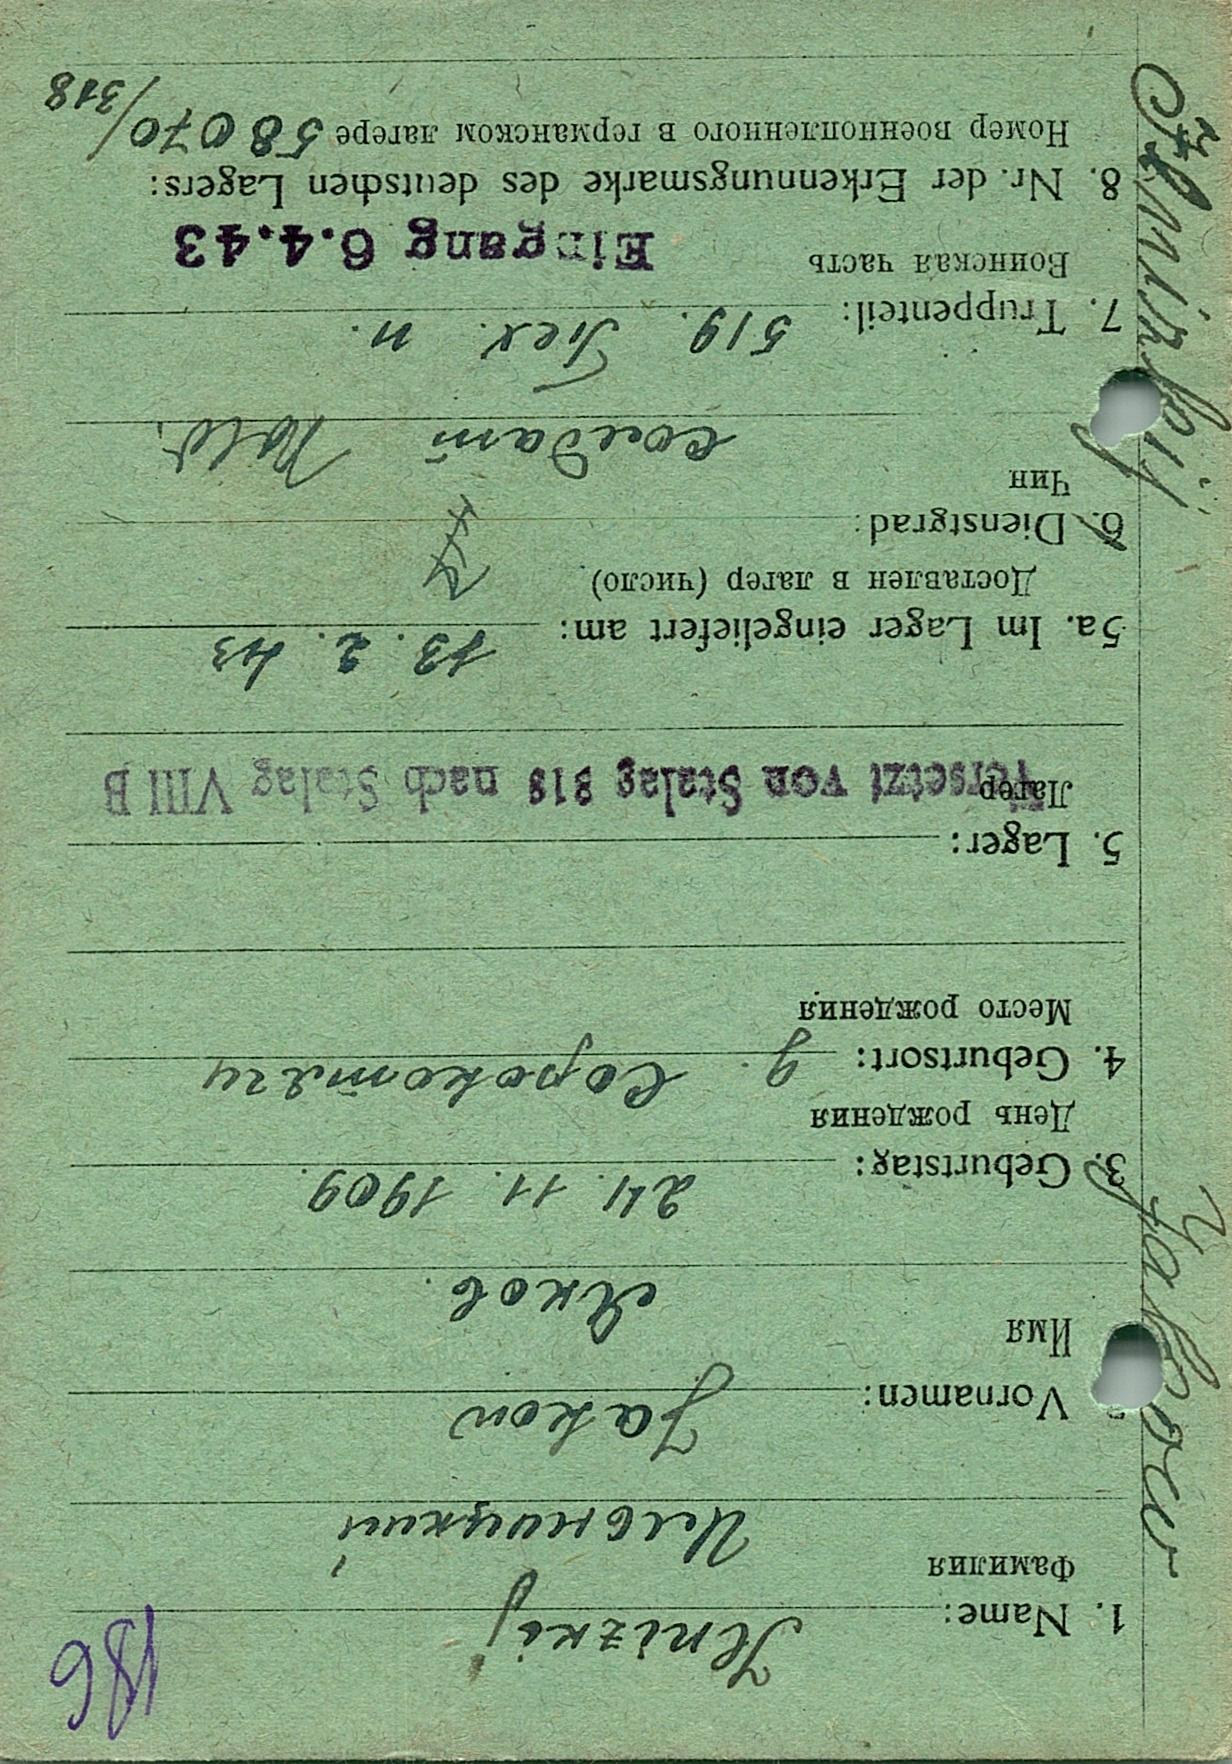 186
1. Name: Ilnizkij
Фамилия
Ильницкий
Vornamen: Jakow
Имя
Яков.
3. Geburtstag: 24. 11. 1909.
День рождения
4. Geburtsort: g. Сорокотяги
Место рождения
5. Lager:
Лагер
Versetzt von Stalag 318 nach Stalag VIII B
5a. Im Lager eingeliefert am: 13. 2. 43
Доставлен в лагер (число)
6. Dienstgrad:
Чин
солдат Sold.
7. Truppenteil: 519. п.
Воинская часть
Eingang 6.4.43
8. Nr. der Erkennungsmarke des deutschen Lagers:
Номер военнопленного в германском лагере 58070/318
Jakow Ilnizkij